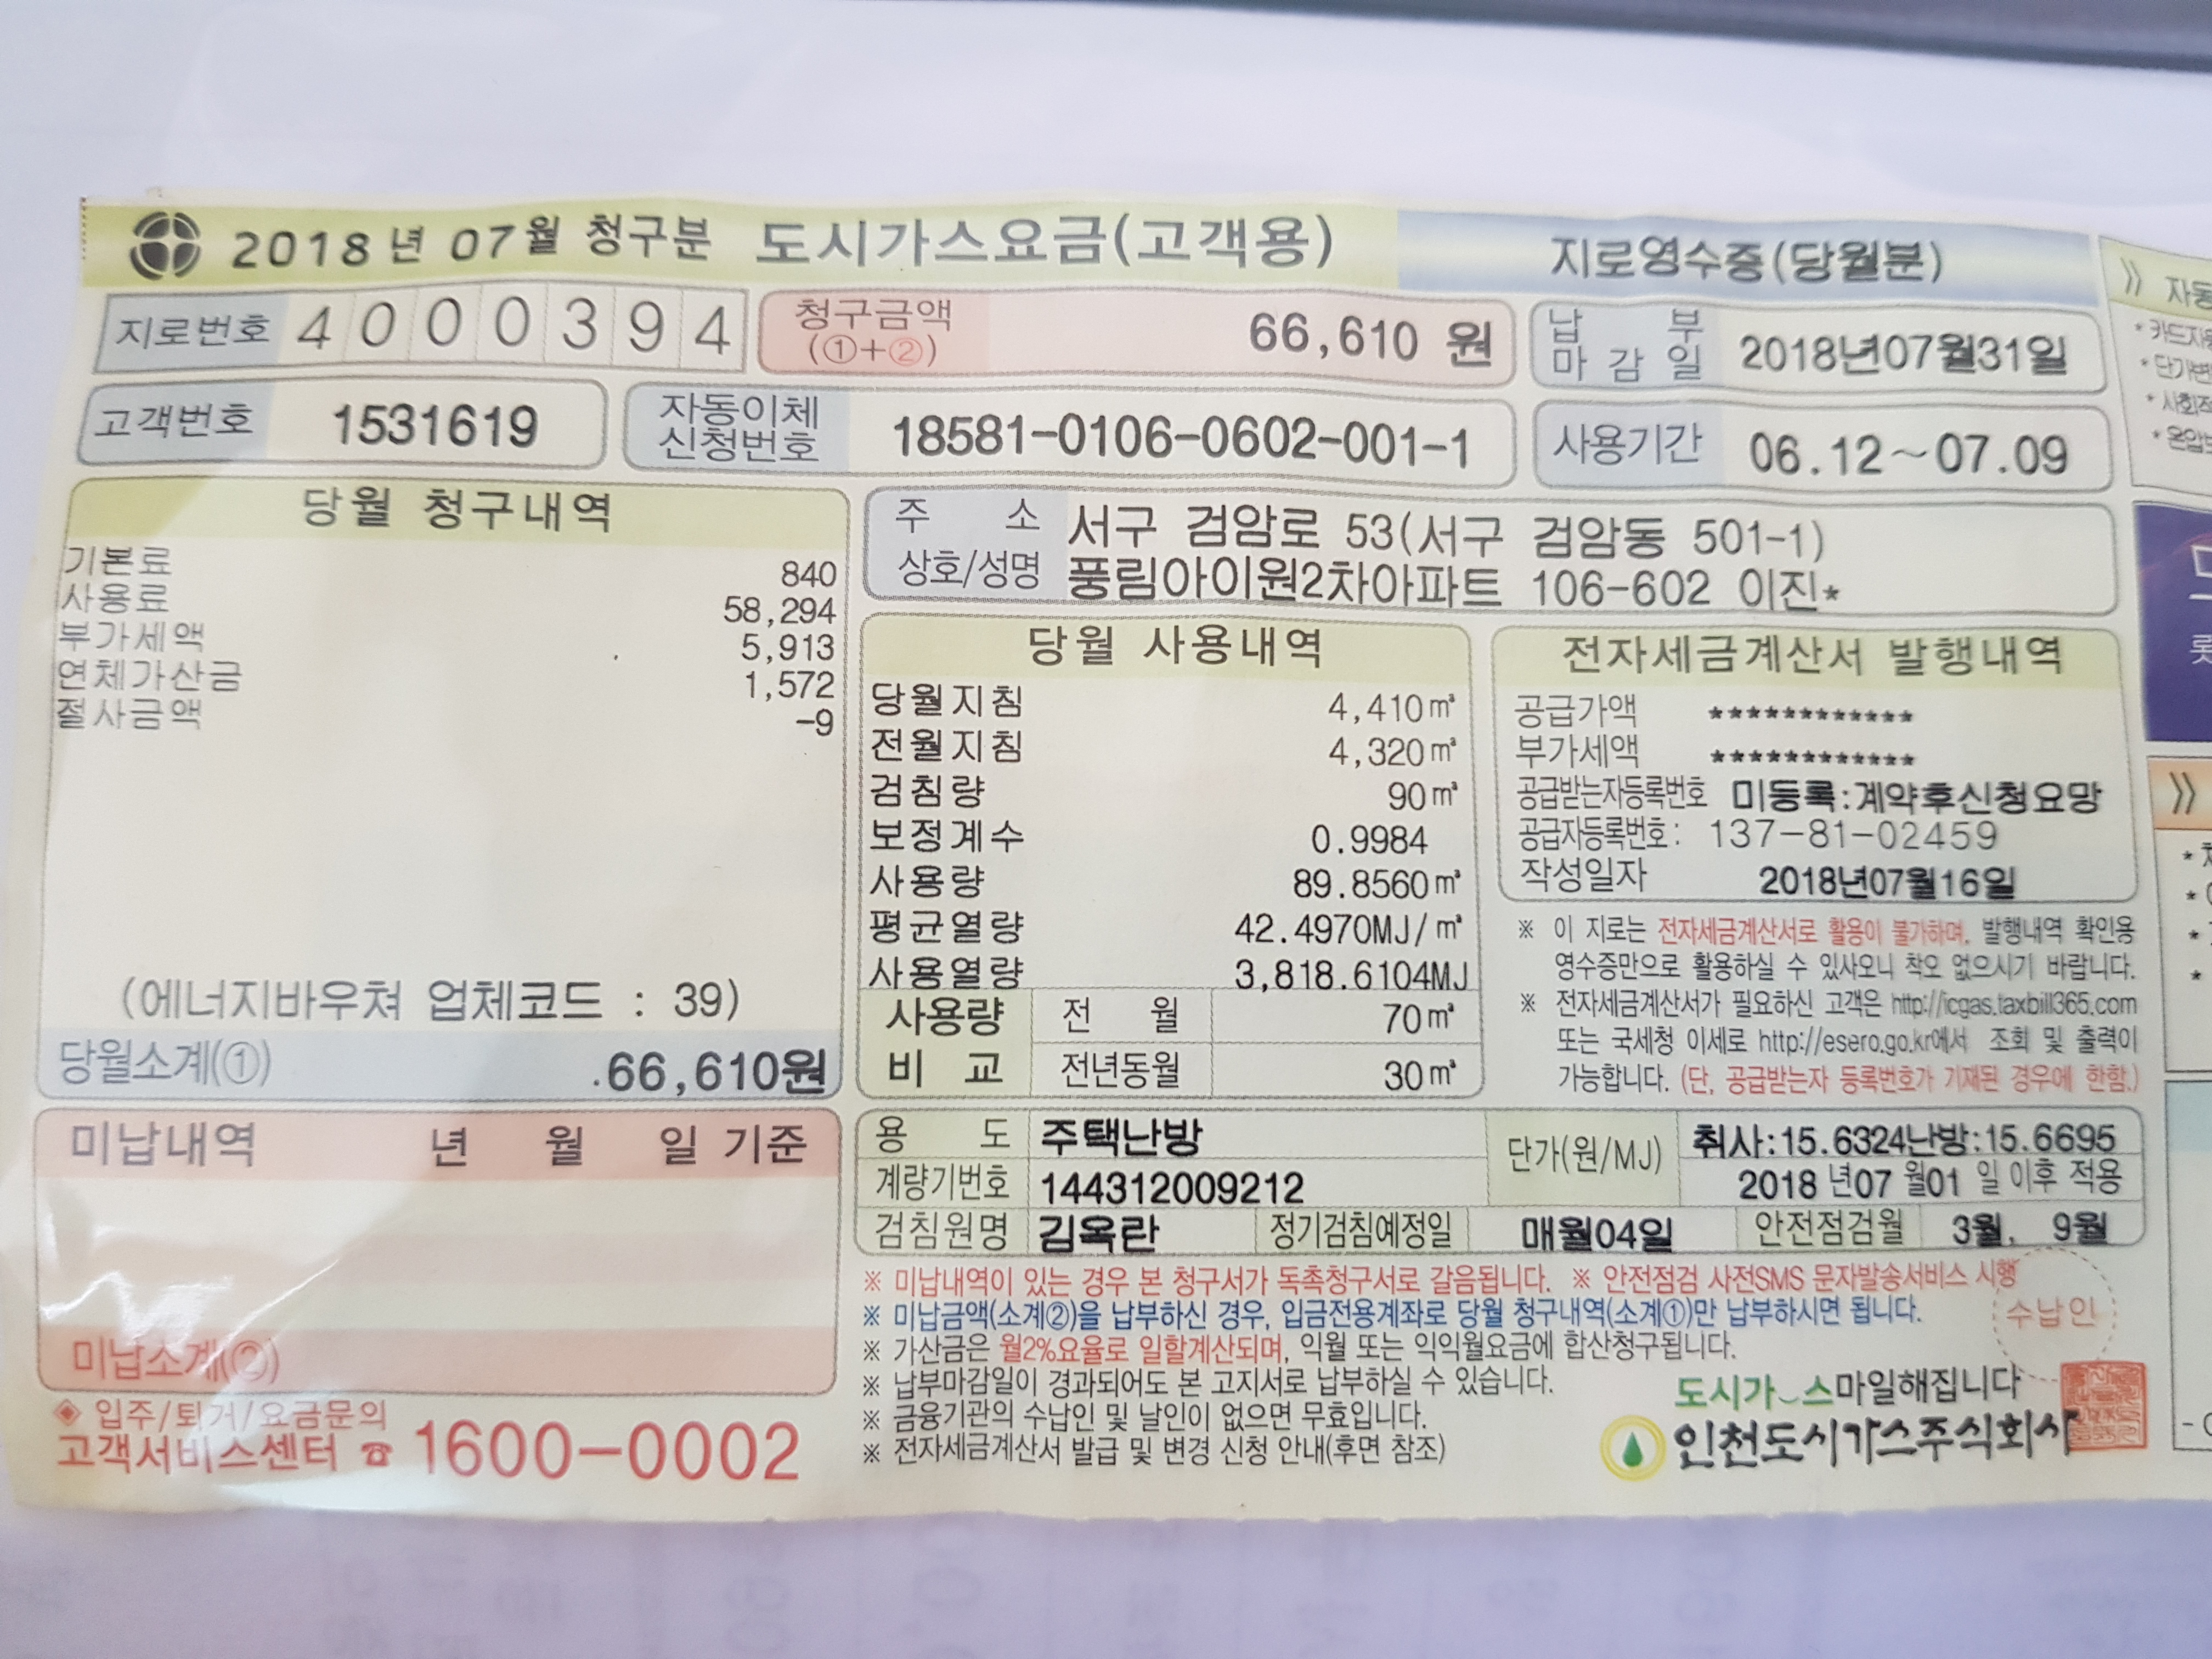 2018년 07월 청구분 도시가스요금(고객용) 지로영수증(당월분)
지로번호 4000394
청구금액 (①+②) 66,610 원
납부마감일 2018년07월31일
고객번호 1531619
자동이체 신청번호 18581-0106-0602-001-1
사용기간 06.12~07.09
당월 청구내역
기본료 840
사용료 58,294
부가세액 5,913
연체가산금 1,572
절사금액 -9
(에너지바우쳐 업체코드 : 39)
당월소계(①) 66,610원
미납내역 년 월 일 기준
미납소계(②)
◈ 입주/퇴거/요금문의
고객서비스센터 ☎ 1600-0002
주 소 서구 검암로 53(서구 검암동 501-1)
상호/성명 풍림아이원2차아파트 106-602 이진*
당월 사용내역
당월지침 4,410㎥
전월지침 4,320㎥
검침량 90㎥
보정계수 0.9984
사용량 89.8560㎥
평균열량 42.4970MJ/㎥
사용열량 3,818.6104MJ
사용량 비교
전 월 70㎥
전년동월 30㎥
전자세금계산서 발행내역
공급가액 ************
부가세액 ************
공급받는자등록번호 미등록:계약후신청요망
공급자등록번호: 137-81-02459
작성일자 2018년07월16일
※ 이 지로는 전자세금계산서로 활용이 불가하며, 발행내역 확인용
영수증만으로 활용하실 수 있사오니 착오 없으시기 바랍니다.
※ 전자세금계산서가 필요하신 고객은 http://icgas.taxbill365.com
또는 국세청 이세로 http://esero.go.kr에서 조회 및 출력이
가능합니다. (단, 공급받는자 등록번호가 기재된 경우에 한함.)
용 도 주택난방
단가(원/MJ) 취사:15.6324난방:15.6695
2018 년07 월01 일 이후 적용
계량기번호 144312009212
검침원명 김옥란 정기검침예정일 매월04일 안전점검월 3월, 9월
※ 미납내역이 있는 경우 본 청구서가 독촉청구서로 갈음됩니다. ※ 안전점검 사전SMS 문자발송서비스 시행
※ 미납금액(소계②)을 납부하신 경우, 입금전용계좌로 당월 청구내역(소계①)만 납부하시면 됩니다.
※ 가산금은 월2%요율로 일할계산되며, 익월 또는 익익월요금에 합산청구됩니다.
※ 납부마감일이 경과되어도 본 고지서로 납부하실 수 있습니다.
※ 금융기관의 수납인 및 날인이 없으면 무효입니다.
※ 전자세금계산서 발급 및 변경 신청 안내(후면 참조)
수납인
도시가스마일해집니다
인천도시가스주식회사
》 자동
* 카드자동
* 단가변
* 사회적
* 온압보